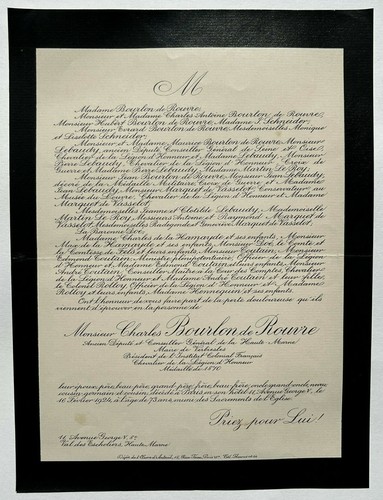 M
Madame Bourlon de Rouvre,
Monsieur et Madame Charles Antoine Bourlon de Rouvre,
Monsieur Hubert Bourlon de Rouvre, Madame J. Schneider,
Monsieur Evrard Bourlon de Rouvre, Mesdemoiselles Monique
et Liselotte Schneider;
Monsieur et Madame Maurice Bourlon de Rouvre, Monsieur
Lebaudy, ancien Député, Conseiller Général de Seine et Oise,
Chevalier de la Légion d'Honneur et Madame Lebaudy, Monsieur
Pierre Lebaudy, Chevalier de la Légion d'Honneur, Croix de
Guerre et Madame Pierre Lebaudy, Madame Martin Le Roy;
Monsieur Jean Bourlon de Rouvre, Monsieur Jean Lebaudy,
décoré de la Médaille Militaire, Croix de Guerre et Madame
Jean Lebaudy, Monsieur Marquet de Vasselot, Conservateur au
Musée du Louvre, Chevalier de la Légion d'Honneur et Madame
Marquet de Vasselot,
Mesdemoiselles Jeanne et Clotilde Lebaudy, Mademoiselle
Martin Le Roy, Messieurs Antoine et Raymond Marquet de
Vasselot, Mesdemoiselles Radegonde et Geneviève Marquet de Vasselot;
La Baronne Dor,
Madame Charles de la Hamayde et ses enfants, Monsieur
Max de la Hamayde et ses enfants, Monsieur Dor, le Comte et
la Comtesse de Fels et leurs enfants, Monsieur Coutan, Monsieur
Edmond Coutan, Ministre plénipotentiaire, Officier de la Légion
d'Honneur et Madame Edmond Coutan et leurs enfants, Monsieur
André Coutan, Conseiller Maître à la Cour des Comptes, Chevalier
de la Légion d'Honneur et Madame André Coutan et leur fille,
le Colonel Rolloy, Officier de la Légion d'Honneur et Madame
Rolloy et leurs enfants, Madame Hennequin et ses enfants
Ont l'honneur de vous faire part de la perte douloureuse qu'ils
viennent d'éprouver en la personne de
Monsieur Charles Bourlon de Rouvre
Ancien Député et Conseiller Général de la Haute-Marne
Maire de Verbiesles
Président de l'Institut Colonial Français
Chevalier de la Légion d'Honneur
Médaillé de 1870
leur époux, père, beau-père, grand-père, frère, beau-frère, oncle, grand-oncle, neveu,
cousin-germain et cousin, décédé à Paris en son hôtel 11 Avenue George V, le
10 Février 1924, à l'âge de 73 ans, muni des Sacrements de l'Eglise.
Priez pour Lui!
11 Avenue George V, 87
Val des Escholiers, Haute-Marne